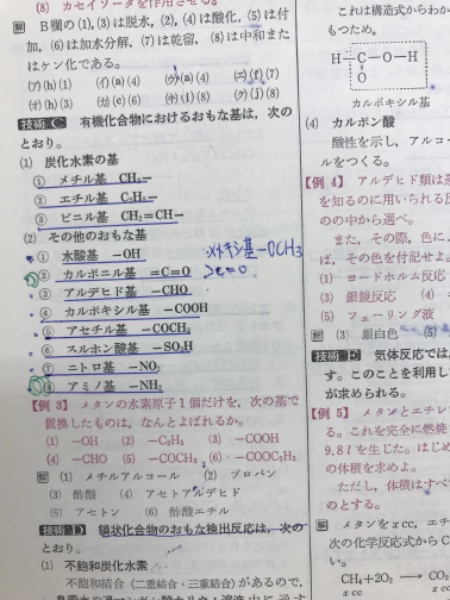 (8) カセイソーダを作用させる。
解 B欄の(1),(3)は脱水,(2),(4)は酸化,(5)は付
加,(6)は加水分解,(7)は乾留,(8)は中和また
はケン化である。
(ア)(h)(1) (イ)(a)(4) (ウ)(a)(4) (エ)(f)(7)
(オ)(h)(3) (カ)(e)(6) (キ)(i)(8) (ク)(j)(8)
技術 C 有機化合物におけるおもな基は,次の
とおり。
(1) 炭化水素の基
① メチル基 CH₃−
② エチル基 C₂H₅−
③ ビニル基 CH₂=CH−
(2) その他のおもな基
① 水酸基 −OH
メトキシ基−OCH₃
② カルボニル基 =C=O
>C=O
③ アルデヒド基 −CHO
④ カルボキシル基 −COOH
⑤ アセチル基 −COCH₃
⑥ スルホン酸基 −SO₃H
⑦ ニトロ基 −NO₂
⑧ アミノ基 −NH₂
【例 3】 メタンの水素原子1個だけを,次の基で
置換したものは,なんとよばれるか。
(1) −OH (2) −C₂H₅ (3) −COOH
(4) −CHO (5) −COCH₃ (6) −COOC₂H₅
解 (1) メチルアルコール (2) プロパン
(3) 酢酸 (4) アセトアルデヒド
(5) アセトン (6) 酢酸エチル
技術 D 鎖状化合物のおもな検出反応は,次の
とおり。
(1) 不飽和炭化水素
不飽和結合(二重結合・三重結合)があるので,
これは構造式からわか
もつため。
H−C−O−H
O
カルボキシル基
(4) カルボン酸
酸性を示し,アルコー
ルをつくる。
【例 4】 アルデヒド類は
を知るのに用いられる反
のの中から選べ。
また,その際,色に
ば,その色を付記せよ。
(1) ヨードホルム反応
(3) 銀鏡反応 (4)
(5) フェーリング液
解 (3) 銀白色 (5)
技術 E 気体反応では,
す。このことを利用し
が求められる。
【例 5】 メタンとエチレ
る。これを完全に燃焼
9.8lを生じた。はじめ
の体積を求めよ。
ただし,体積はすべ
のとする。
解 メタンを x cc, エチ
次の化学反応式から C
い。
CH₄+2O₂ ⟶ CO₂
x cc x cc